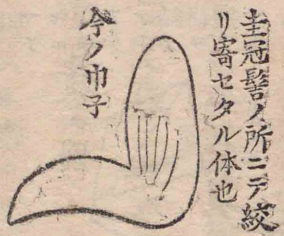 圭冠髻ノ所ニテ絞
リ寄セタル体也
今ノ巾子